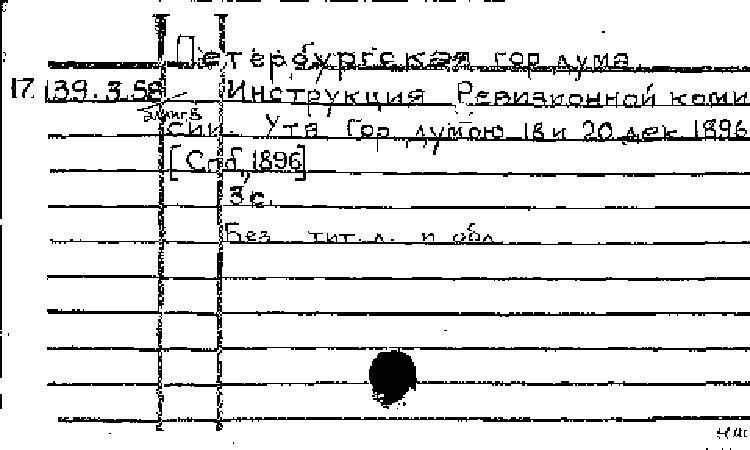 Петербургская гор дума.
17.139.3.58 Инструкция Ревизионной коми
сии. Утв Гор думою 18 и 20 дек 1896
[Спб, 1896]
3с.
Без тит. л. и обл